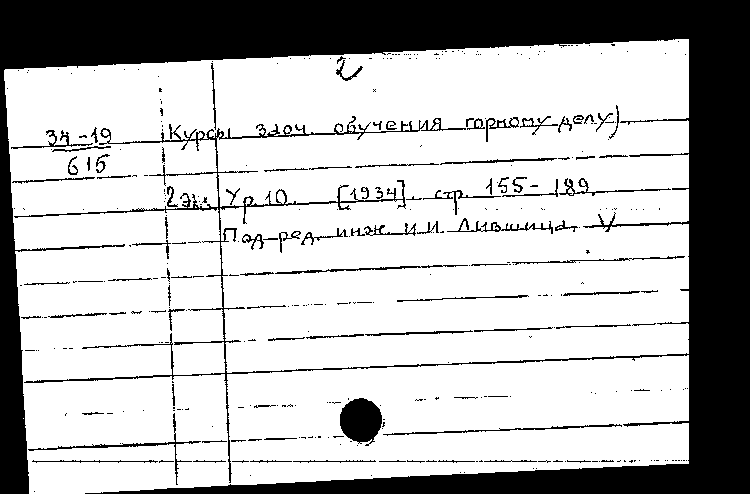 2
34-19 Курсы заоч. обучения горному делу).
615
2 экз. Ур. 10. [1934]. стр. 155-189.
Под ред. инж. И.И. Лившица. V